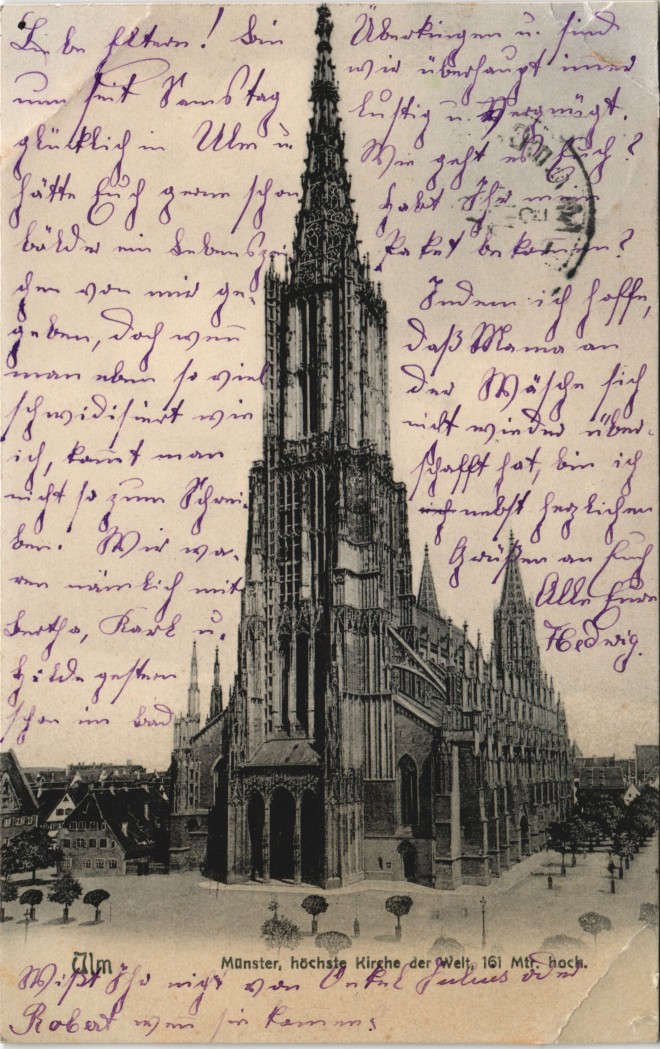 Liebe Eltern! Bin
nun seit Samstag
glücklich in Ulm u.
hätte Euch gerne schon
bälder ein Lebenszei-
chen von mir ge-
geben, doch wenn
man eben so viel
schwidisiert wie
ich, kommt man
nicht so zum Schrei-
ben. Wir wa-
ren nämlich mit
Bertha, Karl u.
Hilde gestern
schon im Bad
Überkingen u. sind
wir überhaupt immer
lustig u. vergnügt.
Wie geht es Euch?
Habt Ihr mein
Paket bekommen?
Indem ich hoffe,
daß Mama an
der Wäsche sich
nicht wieder über-
schafft hat, bin ich
nebst herzlichen
Grüßen an Euch
Alle Eure
Hedwig.
Ulm
Münster, höchste Kirche der Welt, 161 Mtr. hoch.
Wißt Ihr nigs von Onkel Julius oder
Robert wen sie kommen?